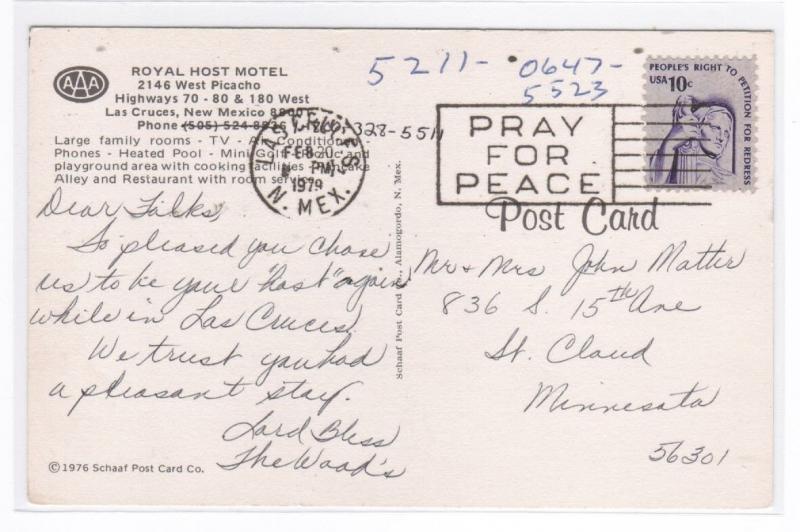 AAA
ROYAL HOST MOTEL
2146 West Picacho
Highways 70 - 80 & 180 West
Las Cruces, New Mexico
Phone (505) 524-8536 328-5511
Large family rooms - TV - Air Conditioned -
Phones - Heated Pool - Mini Golf - Picnic and
playground area with cooking facilities - Pancake
Alley and Restaurant with room service.
Dear Folks,
So pleased you chose
us to be your "host" again
while in Las Cruces.
We trust you had
a pleasant stay.
Lord Bless
The Wood's
©1976 Schaaf Post Card Co.
Schaaf Post Card Co., Alamogordo, N. Mex.
5211- 0647-
5523
LAS CRUCES
FEB 20
PM
1979
N. MEX.
PRAY
FOR
PEACE
PEOPLE'S RIGHT TO PETITION FOR REDRESS
USA 10c
Post Card
Mr + Mrs John Matter
836 S. 15th Ave
St. Cloud
Minnesota
56301